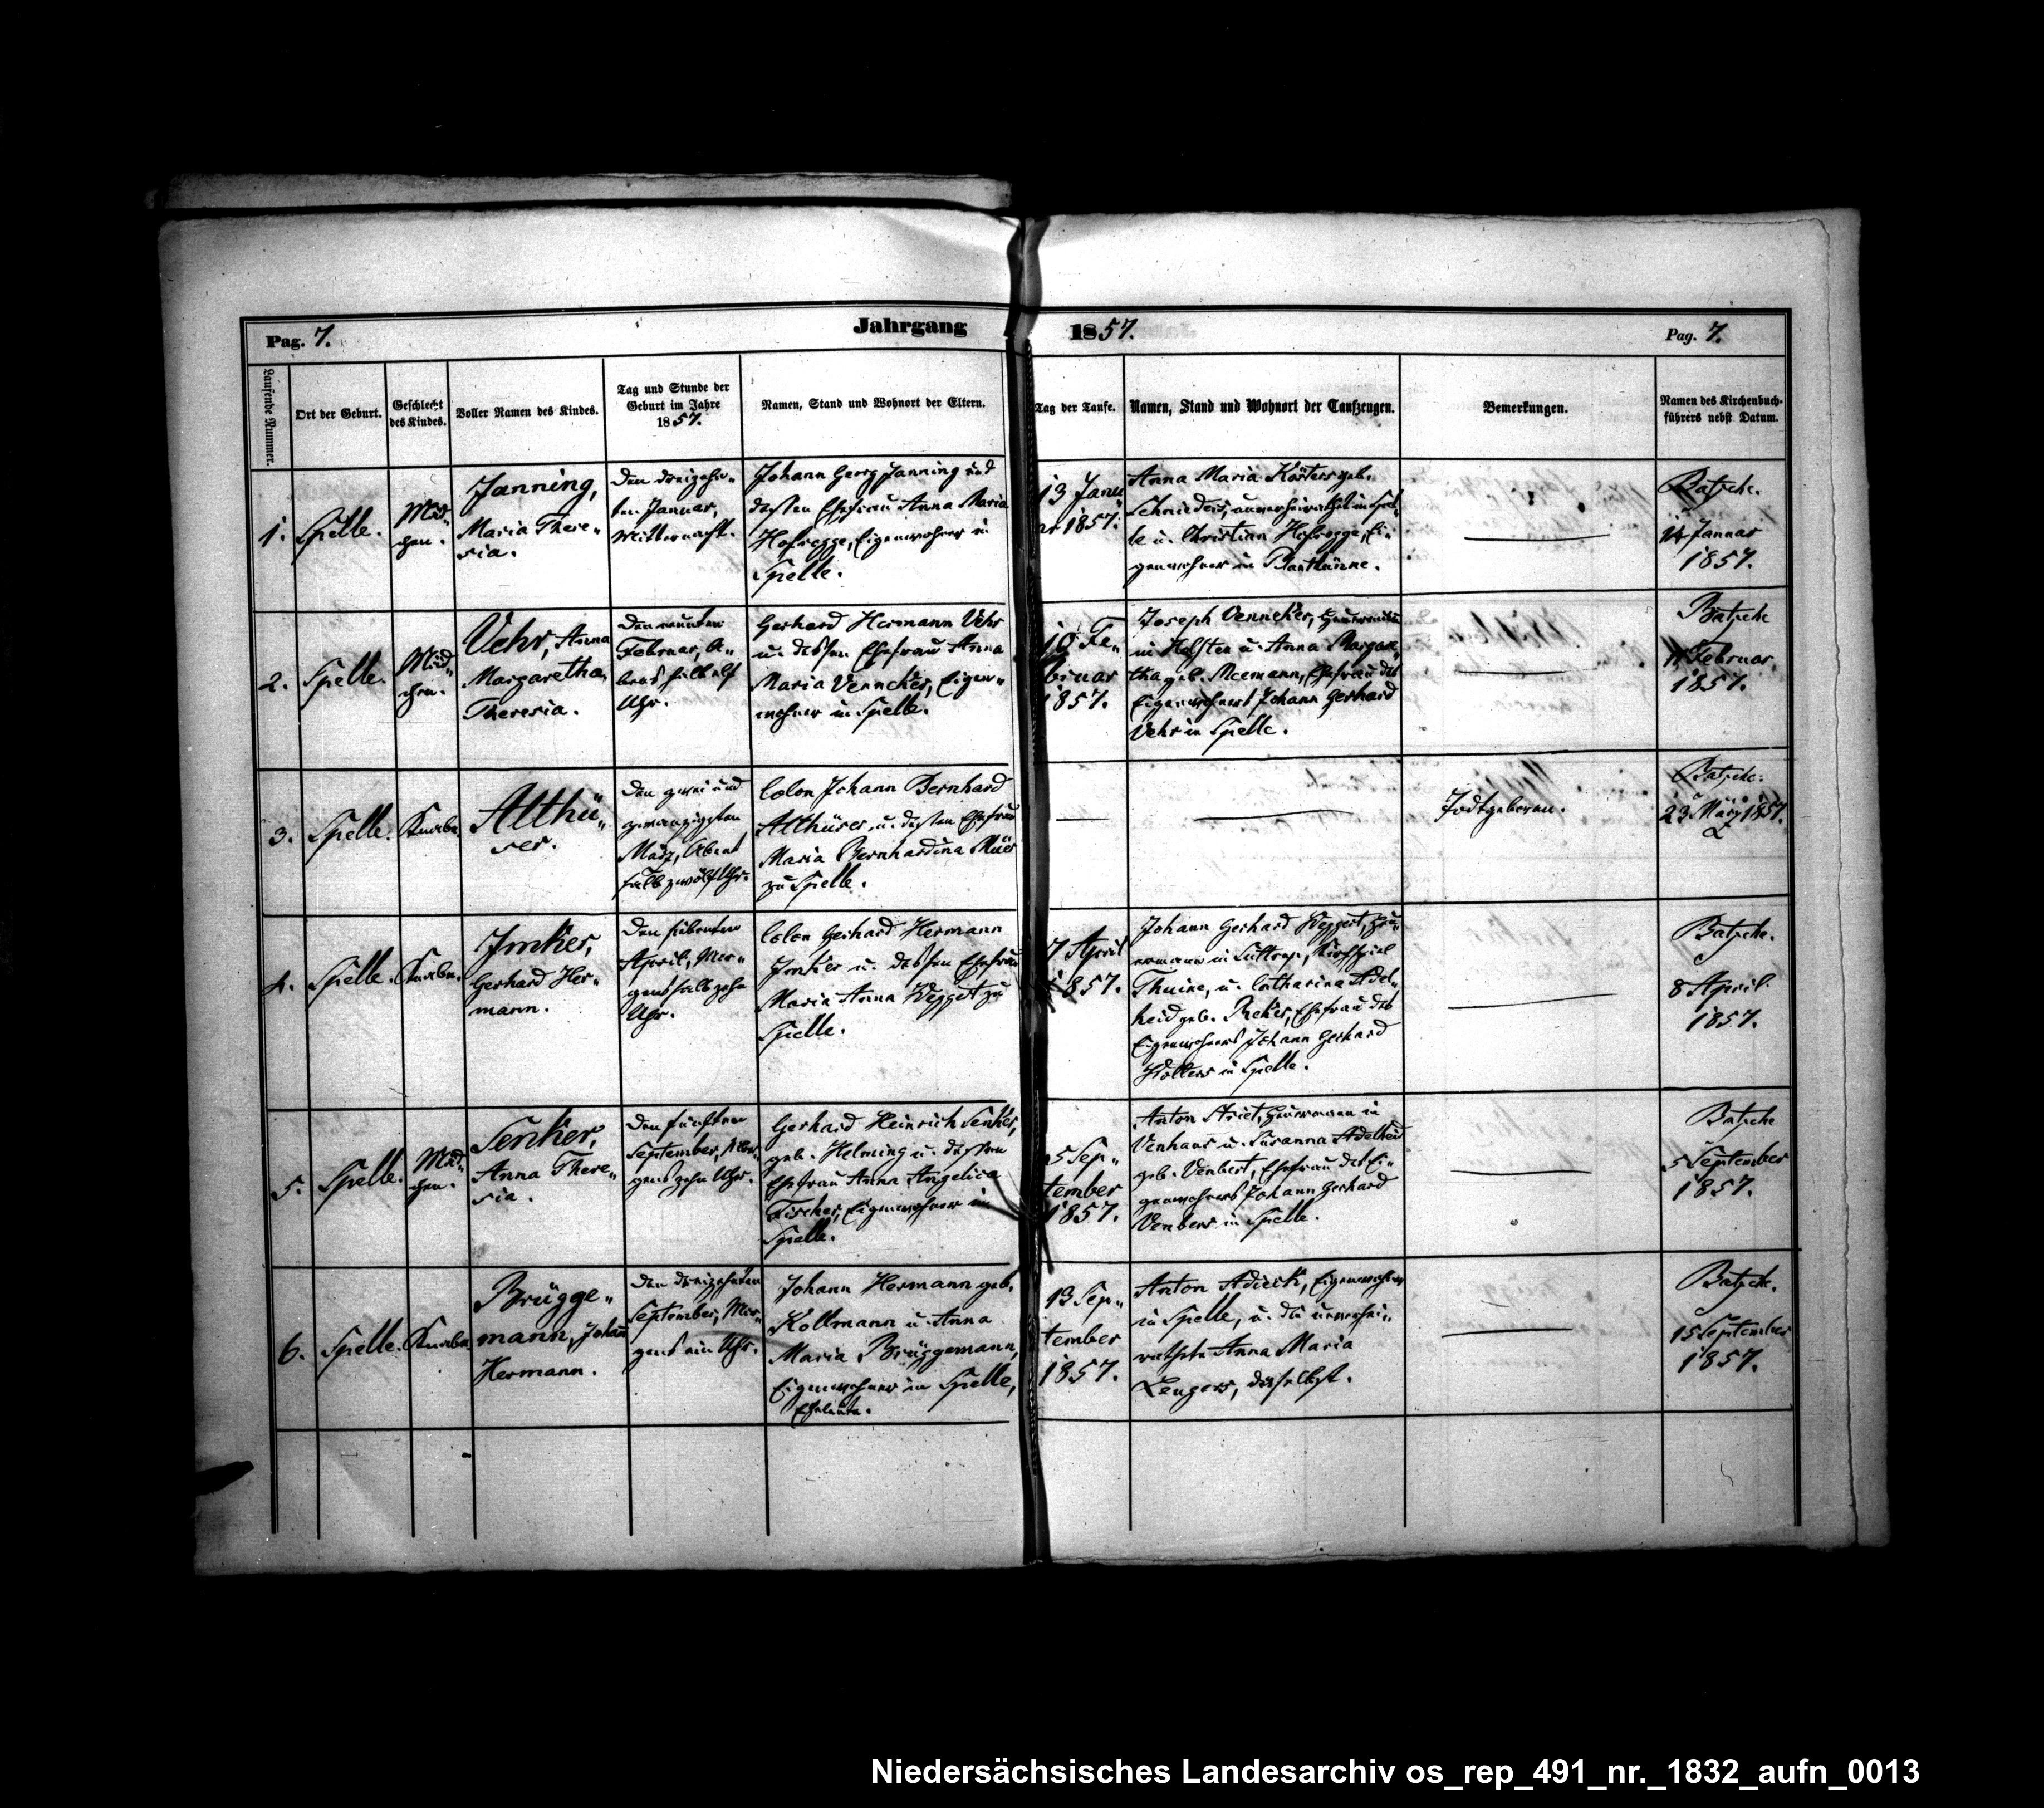 Pag. 7.
Jahrgang
1857.
Pag. 7.
Laufende Nummer.
Ort der Geburt.
Geschlecht
des Kindes.
Voller Namen des Kindes.
Tag und Stunde der
Geburt im Jahre
1857.
Namen, Stand und Wohnort der Eltern.
Tag der Taufe.
Namen, Stand und Wohnort der Taufzeugen.
Bemerkungen.
Namen des Kirchenbuch-
führers nebst Datum.
1.
Spelle.
Mäd„
chen.
Janning,
Maria There„
sia.
Den dreizehn„
ten Januar,
Mitternacht.
Johann Georg Janning und
dessen Ehefrau Anna Maria
Hofrogge, Eigenwohner in
Spelle.
13 Janu
ar 1857.
Anna Maria Kösters geb.
Schnieders, unverheirathet in Spel„
le u. Christian Hofrogge, Ei„
genwohner in Plantlünne.
Batsche.
14 Januar
1857.
2.
Spelle.
Mäd„
chen.
Vehr, Anna
Margaretha
Theresia.
Den neunten
Februar, A„
bends halb elf
Uhr.
Gerhard Hermann Vehr
u. dessen Ehefrau Anna
Maria Venneker, Eigen„
wohner in Spelle.
10 Fe„
bruar
1857.
Joseph Venneker, Heuermann
in Holsten u. Anna Margare„
tha geb. Meemann, Ehefrau des
Eigenwohners Johann Gerhard
Vehr in Spelle.
Batsche
11 Februar
1857.
3.
Spelle.
Knabe
Althü„
ser.
Den zwei und
zwanzigsten
März, Abends
halb zwölf Uhr.
Colon Johann Bernhard
Althüser u. dessen Ehefrau
Maria Bernhardina
zu Spelle.
Todtgeboren.
Batsche.
23 März 1857.
4.
Spelle.
Knabe.
Imker,
Gerhard Her„
mann.
Den siebenten
April, Mor„
gens halb zehn
Uhr.
Colon Gerhard Hermann
Imker u. dessen Ehefrau
Maria Anna Weggert zu
Spelle.
7 April
1857.
Johann Gerhard Weggert, Heu„
ermann in Suttrup, Kirchspiel
Thuine, u. Catharina Adel„
heid geb. Reker, Ehefrau des
Eigenwohners Johann Gerhard
Wolters in Spelle.
Batsche.
8 April
1857.
5.
Spelle.
Mäd„
chen.
Senker,
Anna There„
sia.
Den fünften
September, Mor„
gens zehn Uhr.
Gerhard Heinrich Senker,
geb. Helming u. dessen
Ehefrau Anna Angelica
Fischer, Eigenwohner in
Spelle.
5 Sep„
tember
1857.
Anton Striet, Heuermann in
Venhaus u. Susanna Adelheid
geb. Venbert, Ehefrau des Ei„
genwohners Johann Gerhard
in Spelle.
Batsche
5 September
1857.
6.
Spelle.
Knabe
Brügge„
mann, Johann
Hermann.
Den dreizehnten
September, Mor„
gens ein Uhr.
Johann Hermann geb.
Kollmann u. Anna
Maria Brüggemann,
Eigenwohner in Spelle,
Eheleute.
13 Sep„
tember
1857.
Anton Adieck, Eigenwohner
in Spelle, u. die unverhei„
rathete Anna Maria
Lengers, daselbst.
Batsche.
15 September
1857.
Niedersächsisches Landesarchiv os_rep_491_nr._1832_aufn_0013